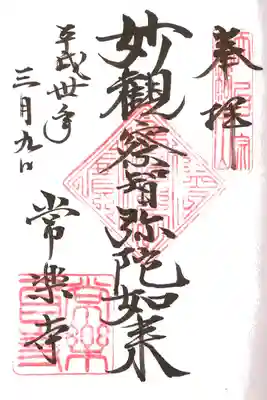 奉拝
妙觀察智弥陀如来
平成卅年
三月九日
常楽寺